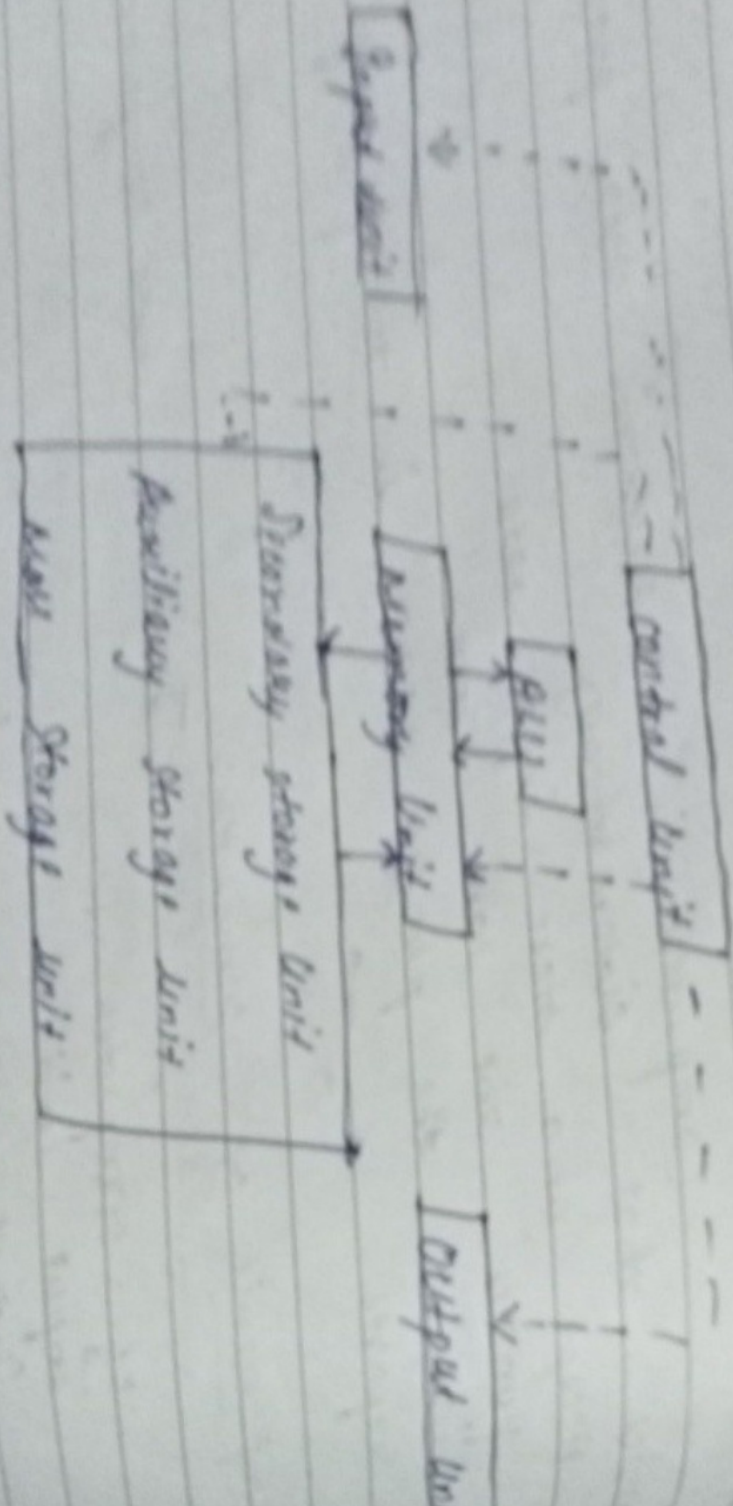 Control Unit
ALU
Input Unit
Memory Unit
Output Un
Secondary storage Unit
Auxiliary storage Unit
storage Unit